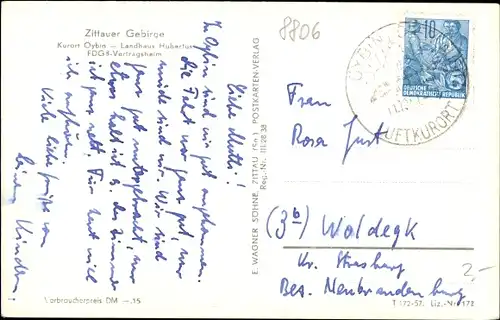 Zittauer Gebirge
Kurort Oybin — Landhaus Hubertus
FDGB-Vertragsheim
8806
Liebe Mutti!
In Oybin sind wir gut angekommen.
die Fahrt war ganz gut, nur
müde sind wir. Wir sind
ganz gut untergebracht, nur
etwas kalt ist es, das Zimmer
ist ganz nett. Für heut will
ich aufhören.
Viele liebe Grüße von
Deinen Kindern
E. WAGNER SÖHNE, ZITTAU (Sa.) POSTKARTEN-VERLAG
Reg.-Nr. III/28/38
OYBIN
LUFTKURORT
10
DEUTSCHE
DEMOKRATISCHE REPUBLIK
Frau
Rosa Just
(3b) Woldegk
Kr. Strasburg
Bez. Neubrandenburg
2,-
Verbraucherpreis DM —.15
T 172-57. Liz.-Nr. 172